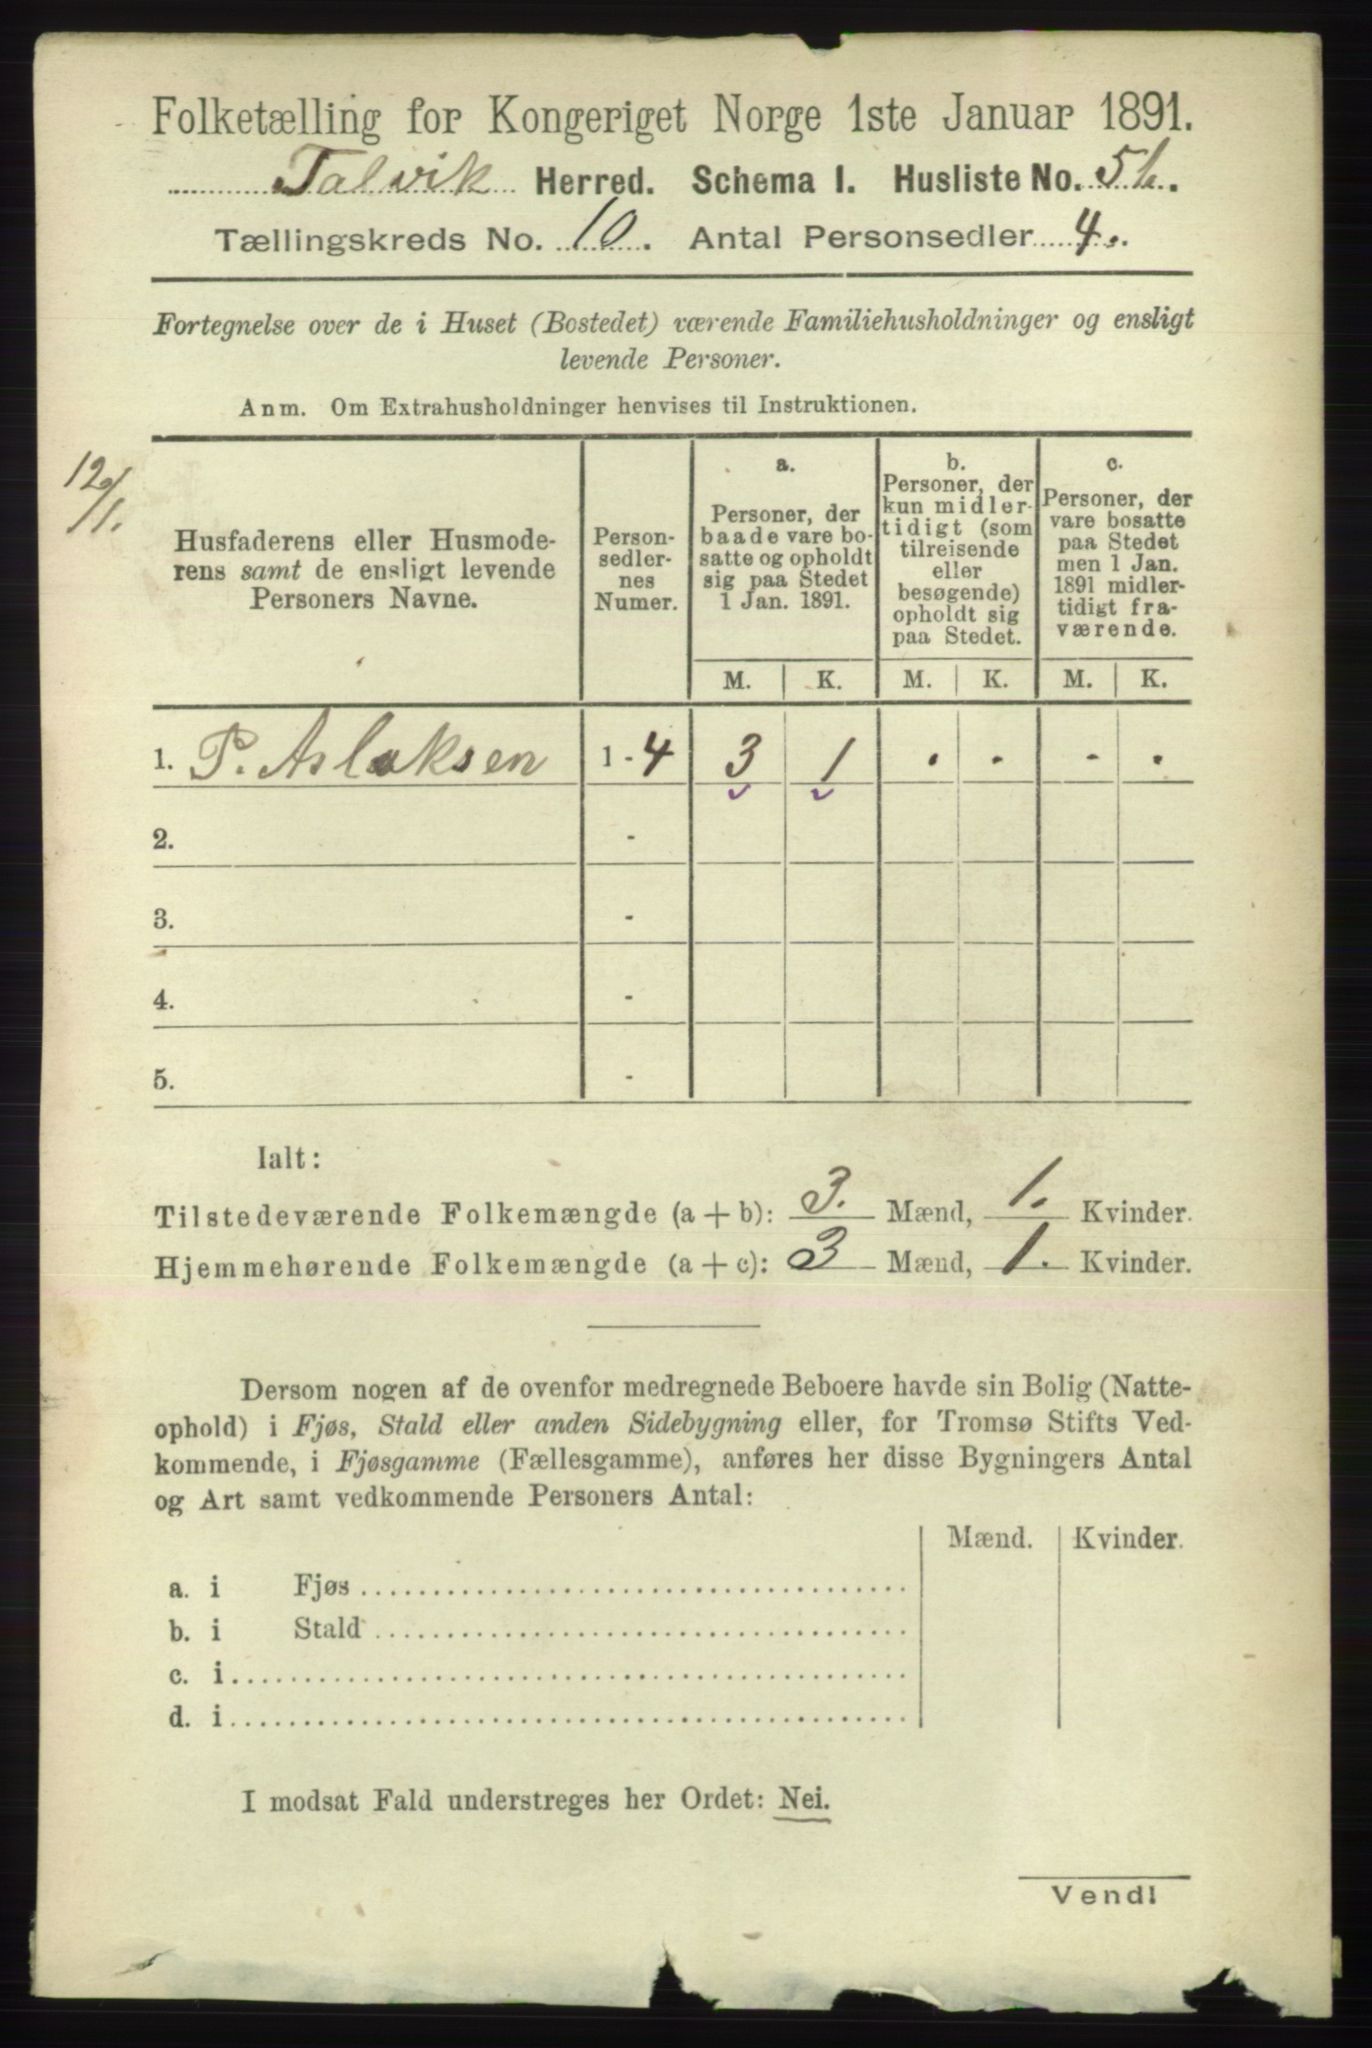 Folketælling for Kongeriget Norge 1ste Januar 1891.
Talvik Herred. Schema I. Husliste No.
Tællingskreds No. 10. Antal Personsedler 4.
Fortegnelse over de i Huset (Bostedet) værende Familiehusholdninger og ensligt
levende Personer.
Anm. Om Extrahusholdninger henvises til Instruktionen.
12/1.
Husfaderens eller Husmode-
rens samt de ensligt levende
Personers Navne.
Person-
sedler-
nes
Numer.
a.
Personer, der
baade vare bo-
satte og opholdt
sig paa Stedet
1 Jan. 1891.
b.
Personer, der
kun midler-
tidigt (som
tilreisende
eller
besøgende)
opholdt sig
paa Stedet.
c.
Personer, der
vare bosatte
paa Stedet
men 1 Jan.
1891 midler-
tidigt fra-
værende.
M. K. M. K. M. K.
1. P. Aslaksen 1 - 4 3 1 . . . .
2. -
3. -
4. -
5. -
Ialt:
Tilstedeværende Folkemængde (a + b): 3. Mænd, 1. Kvinder.
Hjemmehørende Folkemængde (a + c): 3 Mænd, 1. Kvinder.
Dersom nogen af de ovenfor medregnede Beboere havde sin Bolig (Natte-
ophold) i Fjøs, Stald eller anden Sidebygning eller, for Tromsø Stifts Ved-
kommende, i Fjøsgamme (Fællesgamme), anføres her disse Bygningers Antal
og Art samt vedkommende Personers Antal:
Mænd. Kvinder.
a. i Fjøs
b. i Stald
c. i
d. i
I modsat Fald understreges her Ordet: Nei.
Vend!